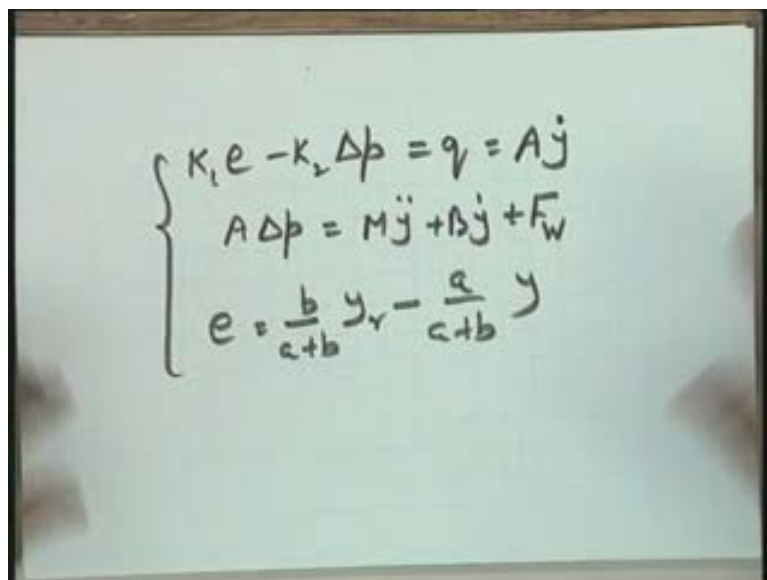 K₁e - K₂Δp = q = Aẏ
AΔp = Mÿ + Bẏ + F_W
e = b/(a+b) y_r - a/(a+b) y